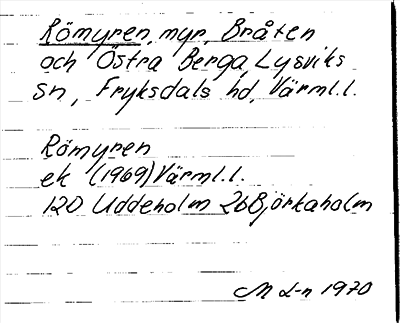 Römyren, myr, Bråten
och Östra Berga, Lysviks
sn, Fryksdals hd, Värml.l.
Römyren
ek (1969) Värml.l.
120 Uddeholm 26 Björkaholm
M L-n 1970